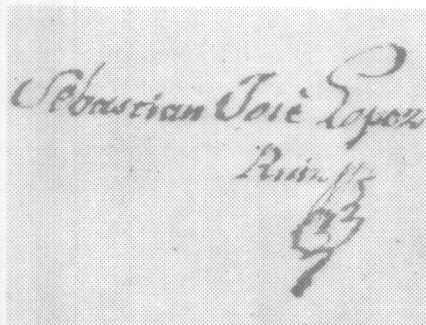 Sebastian José Lopez
Ruiz